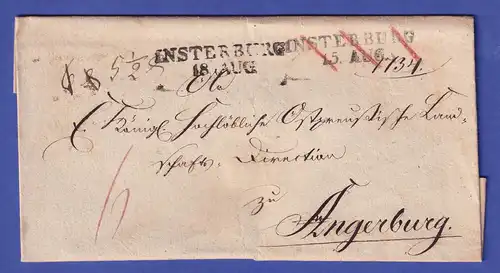 INSTERBURG INSTERBURG
18. AUG 15. AUG.
5½
1734
An
E. Königl. Hochlöbliche Ostpreußische Land-
schafts-Direction
zu
Angerburg.